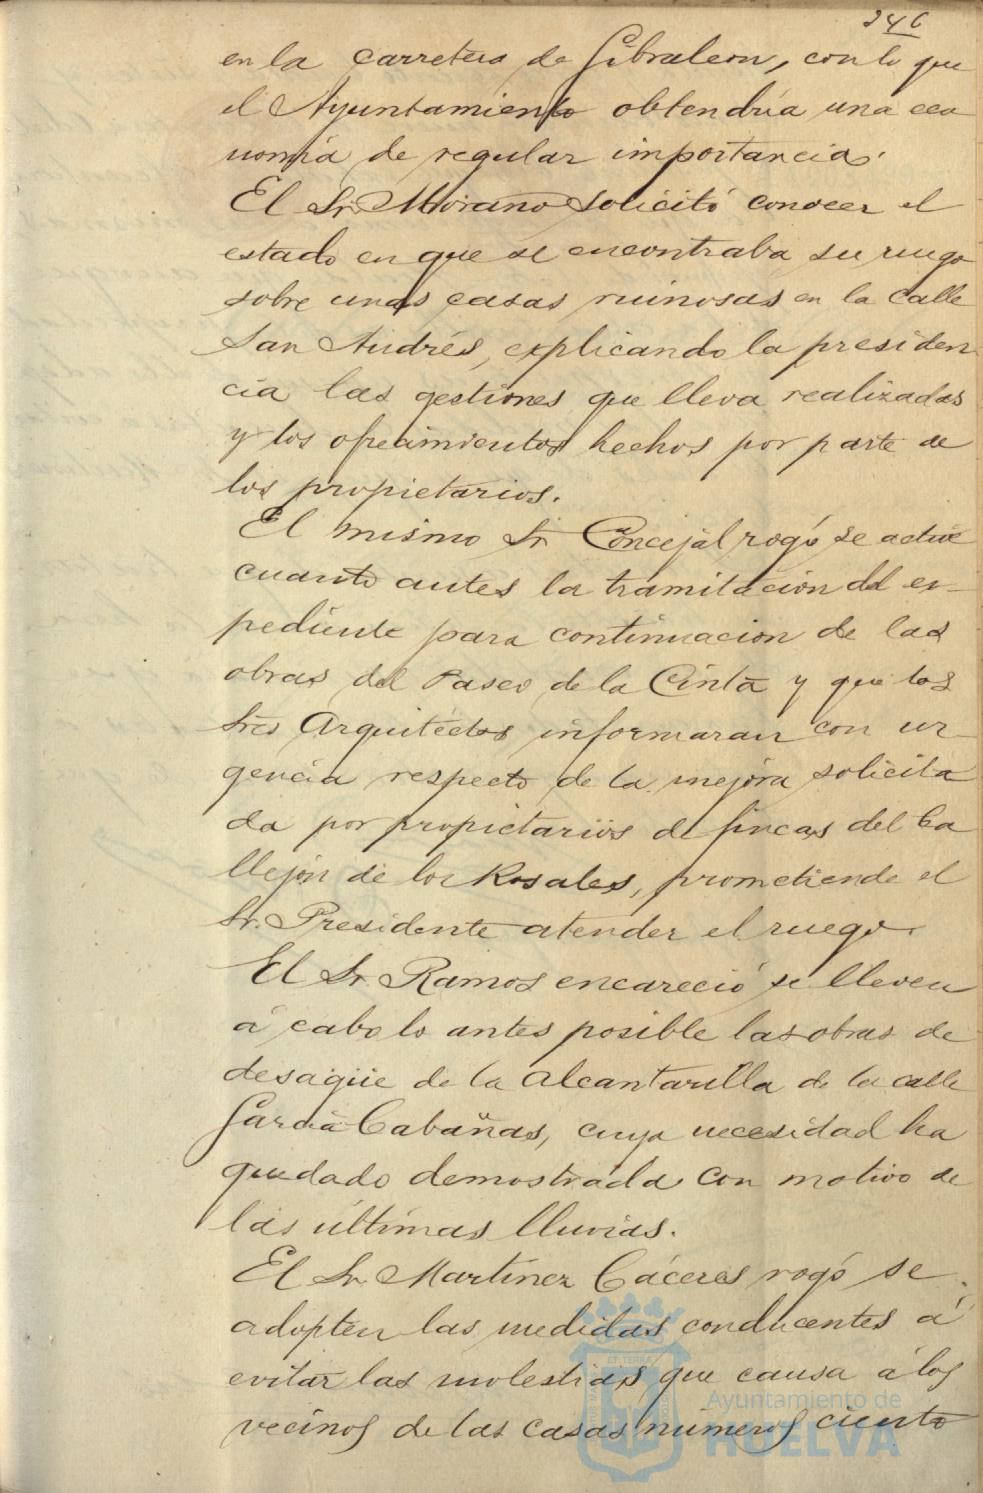 246
en la carretera de Gibraleon, con lo que
el Ayuntamiento obtendría una eco
nomía de regular importancia.
El Sr. Morano solicitó conocer el
estado en que se encontraba su ruego
sobre unas casas ruinosas en la calle
San Andrés, explicando la presiden
cia las gestiones que lleva realizadas
y los ofrecimientos hechos por parte de
los propietarios.
El mismo Sr Concejal rogó se active
cuanto antes la tramitación del ex-
pediente para continuacion de las
obras del Paseo de la Cinta y que los
Sres Arquitectos informaran con ur-
gencia respecto de la mejora solicita
da por propietarios de fincas del Ca
llejón de los Rosales, prometiendo el
Sr. Presidente atender el ruego.
El Sr Ramos encareció se lleven
á cabo lo antes posible las obras de
desagüe de la alcantarilla de la calle
Garcia Cabañas, cuya necesidad ha
quedado demostrada con motivo de
las últimas lluvias.
El Sr. Martínez Cáceres rogó se
adopten las medidas conducentes á
evitar las molestias que causa á los
vecinos de las casas números ciento
Ayuntamiento de
HUELVA